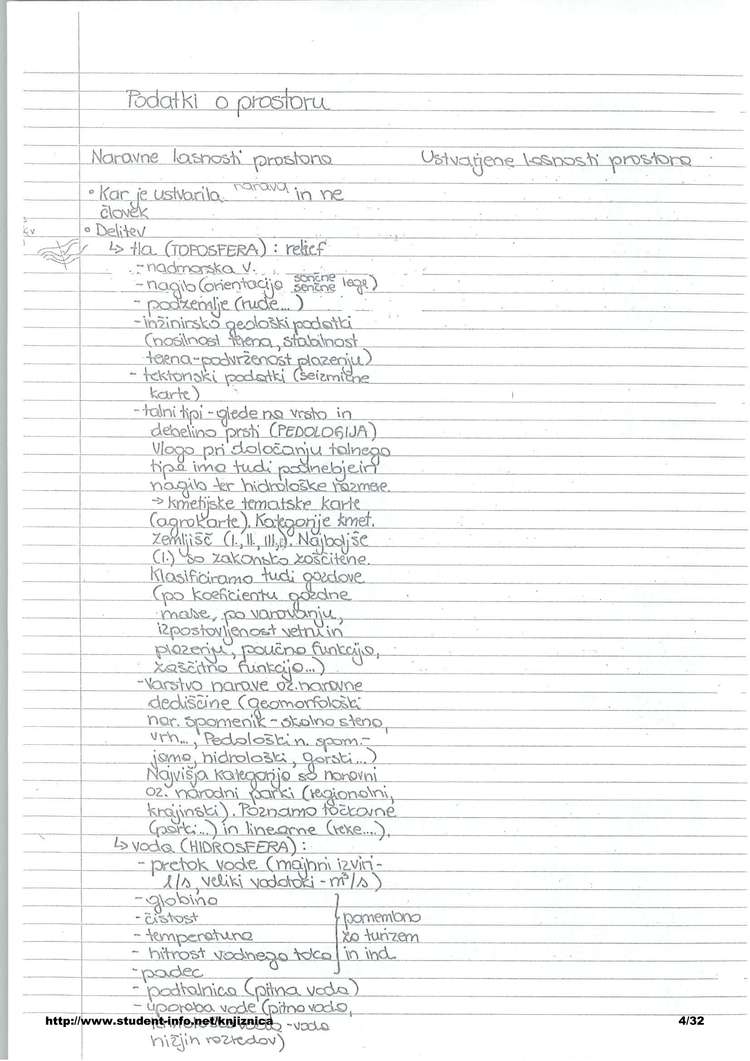 Podatki o prostoru
Naravne lasnosti prostora
Ustvarjene lasnosti prostora
• Kar je ustvarila narava in ne
človek
• Delitev
↳ tla (TOPOSFERA) : relief
- nadmorska v.
- nagib (orientacija sončne senčne lege)
- podzemlje (rude...)
- inžinirsko geološki podatki
(nosilnost terena, stabilnost
terena-podvrženost plazenju)
- tektonski podatki (seizmične
karte)
- talni tipi - glede na vrsto in
debelino prsti (PEDOLOGIJA)
Vlogo pri določanju talnega
tipa ima tudi podnebje in
nagib ter hidrološke razmere.
→ kmetijske tematske karte
(agrokarte). Kategorije kmet.
zemljišč (I., II., III.,). Najboljše
(I.) so zakonsko zaščitene.
Klasificiramo tudi gozdove
(po koeficientu gozdne
mase, po varovanju,
izpostavljenost vetru in
plazenju, poučno funkcijo,
zaščitno funkcijo...)
- Varstvo narave oz. naravne
dediščine (geomorfološki
nar. spomenik - skalna stena,
vrh..., Pedološki n. spom.-
jama, hidrološki, gorski...)
Najvišja kategorija so naravni
oz. narodni parki (regionalni,
krajinski). Poznamo točkovne
(parki...) in linearne (reke....).
↳ voda (HIDROSFERA) :
- pretok vode (majhni izviri-
l/s, veliki vodotoki - m³/s)
- globina
- čistost
- temperatura
- hitrost vodnega toka
- padec
pomembno
za turizem
in ind.
- podtalnica (pitna voda)
- uporaba vode (pitna voda,
http://www.student-info.net/knjiznica
- voda
4/32
nižjih razredov)